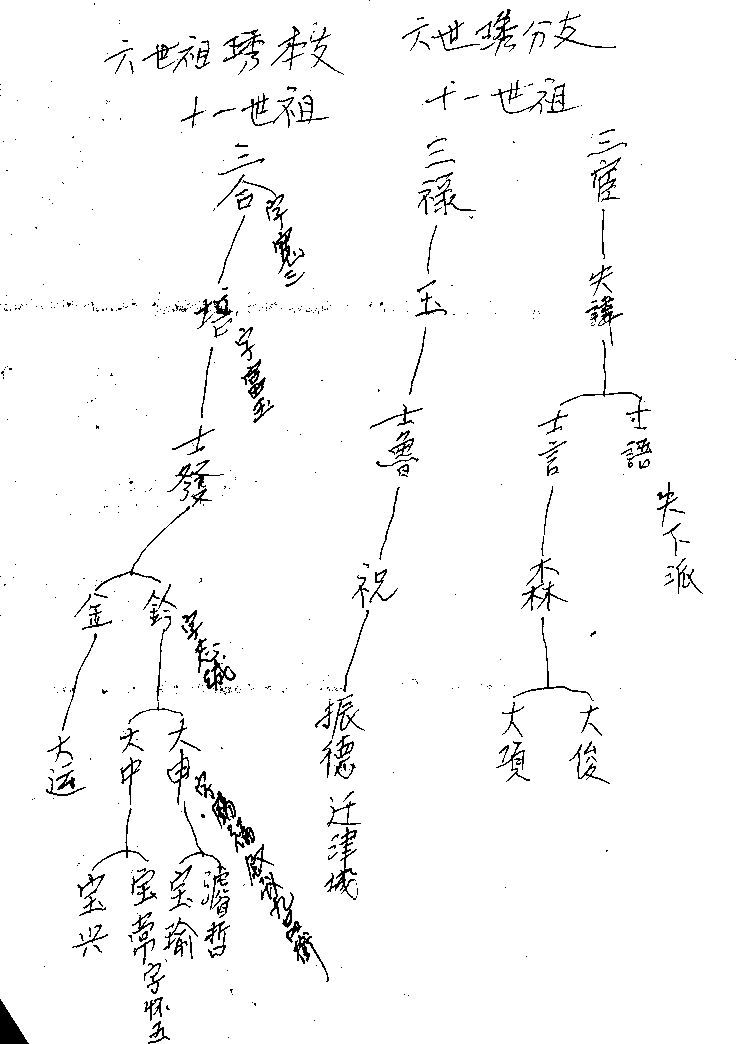 六世祖琇本支
十一世祖
三合
字寬三
培
字富玉
士發
金
鈴
字志诚
大运
大中
大申
宝兴
宝常字怀五
宝瑜
濬哲
六世琇分支
十一世祖
三祿
玉
士魯
祝
振德迁津城
三宦
失諱
士言
士語
失下派
森
大項
大俊